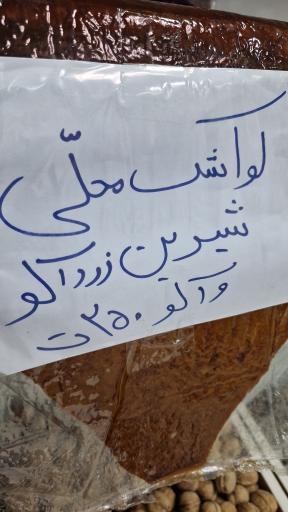 لواشک محلّی
شیرین زردآلو
و آلو ۲۵۰ ت